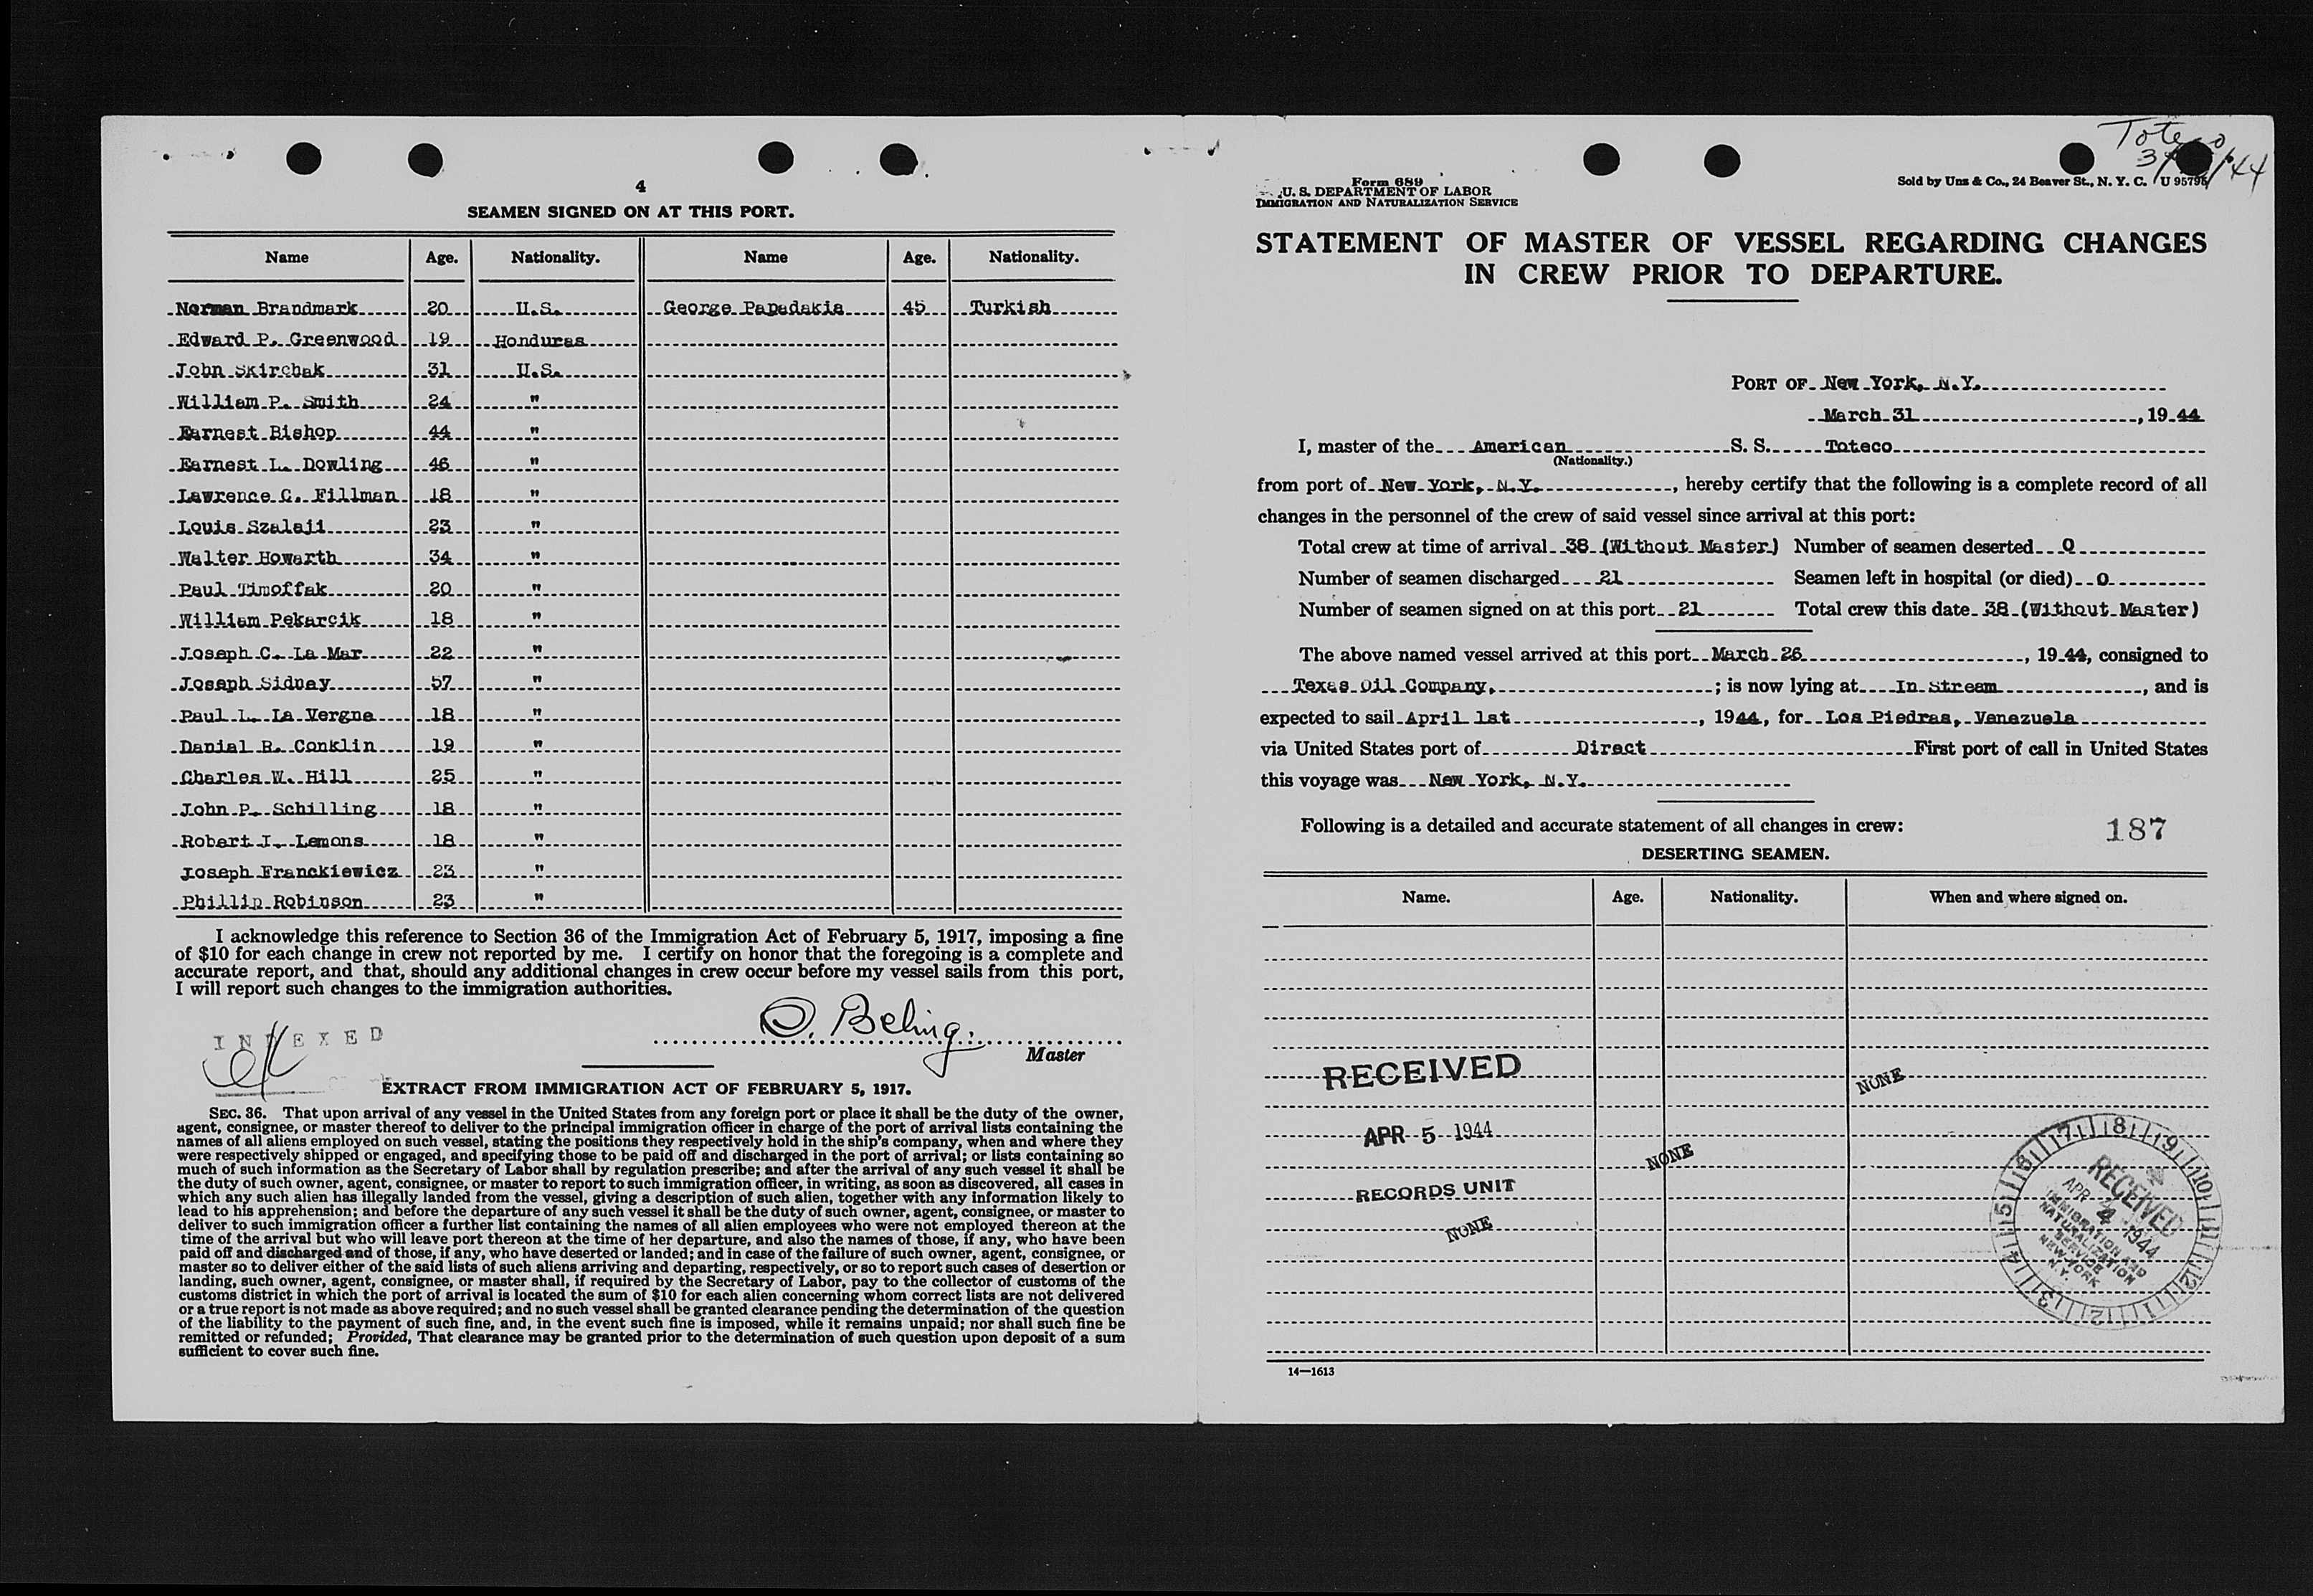 4
SEAMEN SIGNED ON AT THIS PORT.
Name Age. Nationality. Name Age. Nationality.
Norman Brandmark 20 U.S. George Papadakis 45 Turkish
Edward P. Greenwood 19 Honduras
John Skirchak 31 U.S.
William P. Smith 24 "
Earnest Bishop 44 "
Earnest L. Dowling 46 "
Lawrence C. Fillman 18 "
Louis Szalaji 23 "
Walter Howarth 34 "
Paul Timoffak 20 "
William Pekarcik 18 "
Joseph C. La Mar 22 "
Joseph Sidney 57 "
Paul L. La Vergne 18 "
Danial R. Conklin 19 "
Charles W. Hill 25 "
John P. Schilling 18 "
Robert J. Lemons 18 "
Joseph Franckiewicz 23 "
Phillip Robinson 23 "
I acknowledge this reference to Section 36 of the Immigration Act of February 5, 1917, imposing a fine
of $10 for each change in crew not reported by me. I certify on honor that the foregoing is a complete and
accurate report, and that, should any additional changes in crew occur before my vessel sails from this port,
I will report such changes to the immigration authorities.
O. Beling.
Master
INDEXED
EXTRACT FROM IMMIGRATION ACT OF FEBRUARY 5, 1917.
SEC. 36. That upon arrival of any vessel in the United States from any foreign port or place it shall be the duty of the owner,
agent, consignee, or master thereof to deliver to the principal immigration officer in charge of the port of arrival lists containing the
names of all aliens employed on such vessel, stating the positions they respectively hold in the ship's company, when and where they
were respectively shipped or engaged, and specifying those to be paid off and discharged in the port of arrival; or lists containing so
much of such information as the Secretary of Labor shall by regulation prescribe; and after the arrival of any such vessel it shall be
the duty of such owner, agent, consignee, or master to report to such immigration officer, in writing, as soon as discovered, all cases in
which any such alien has illegally landed from the vessel, giving a description of such alien, together with any information likely to
lead to his apprehension; and before the departure of any such vessel it shall be the duty of such owner, agent, consignee, or master to
deliver to such immigration officer a further list containing the names of all alien employees who were not employed thereon at the
time of the arrival but who will leave port thereon at the time of her departure, and also the names of those, if any, who have been
paid off and discharged and of those, if any, who have deserted or landed; and in case of the failure of such owner, agent, consignee, or
master so to deliver either of the said lists of such aliens arriving and departing, respectively, or so to report such cases of desertion or
landing, such owner, agent, consignee, or master shall, if required by the Secretary of Labor, pay to the collector of customs of the
customs district in which the port of arrival is located the sum of $10 for each alien concerning whom correct lists are not delivered
or a true report is not made as above required; and no such vessel shall be granted clearance pending the determination of the question
of the liability to the payment of such fine, and, in the event such fine is imposed, while it remains unpaid; nor shall such fine be
remitted or refunded; Provided, That clearance may be granted prior to the determination of such question upon deposit of a sum
sufficient to cover such fine.
Toteco
Form 689
U. S. DEPARTMENT OF LABOR
IMMIGRATION AND NATURALIZATION SERVICE
Sold by Unz & Co., 24 Beaver St., N. Y. C. U 95795
STATEMENT OF MASTER OF VESSEL REGARDING CHANGES
IN CREW PRIOR TO DEPARTURE.
PORT OF New York, N.Y.
March 31, 19 44
I, master of the American S. S. Toteco
(Nationality.)
from port of New York, N.Y., hereby certify that the following is a complete record of all
changes in the personnel of the crew of said vessel since arrival at this port:
Total crew at time of arrival 38 (Without Master) Number of seamen deserted 0
Number of seamen discharged 21 Seamen left in hospital (or died) 0
Number of seamen signed on at this port 21 Total crew this date 38 (Without Master)
The above named vessel arrived at this port March 26, 19 44, consigned to
Texas Oil Company, ; is now lying at In Stream, and is
expected to sail April 1st, 1944, for Los Piedras, Venazuela
via United States port of Direct First port of call in United States
this voyage was New York, N.Y.
Following is a detailed and accurate statement of all changes in crew: 187
DESERTING SEAMEN.
Name. Age. Nationality. When and where signed on.
RECEIVED
APR 5 1944
RECORDS UNIT
NONE
NONE
NONE
RECEIVED
APR 4 1944
IMMIGRATION AND
NATURALIZATION
SERVICE
NEW YORK
N.Y.
14—1613